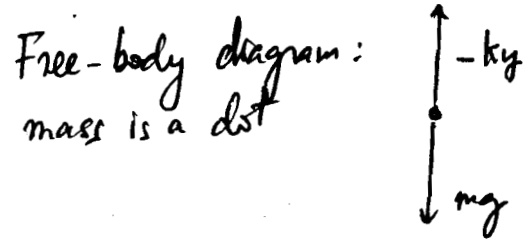 Free-body diagram:
mass is a dot
-ky
mg